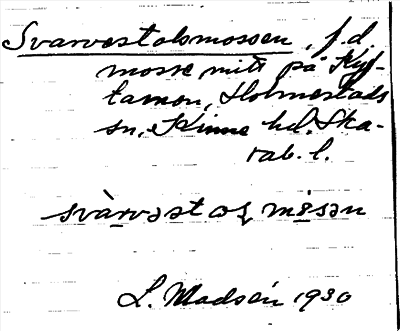 Svarvestolsmossen, f.d
mosse mitt på Kjyf-
tamon, Holmestads
sn, Kinne hd. Ska-
rab. l.
svàrvəst ωɭ mɵsən
L. Madsén 1930